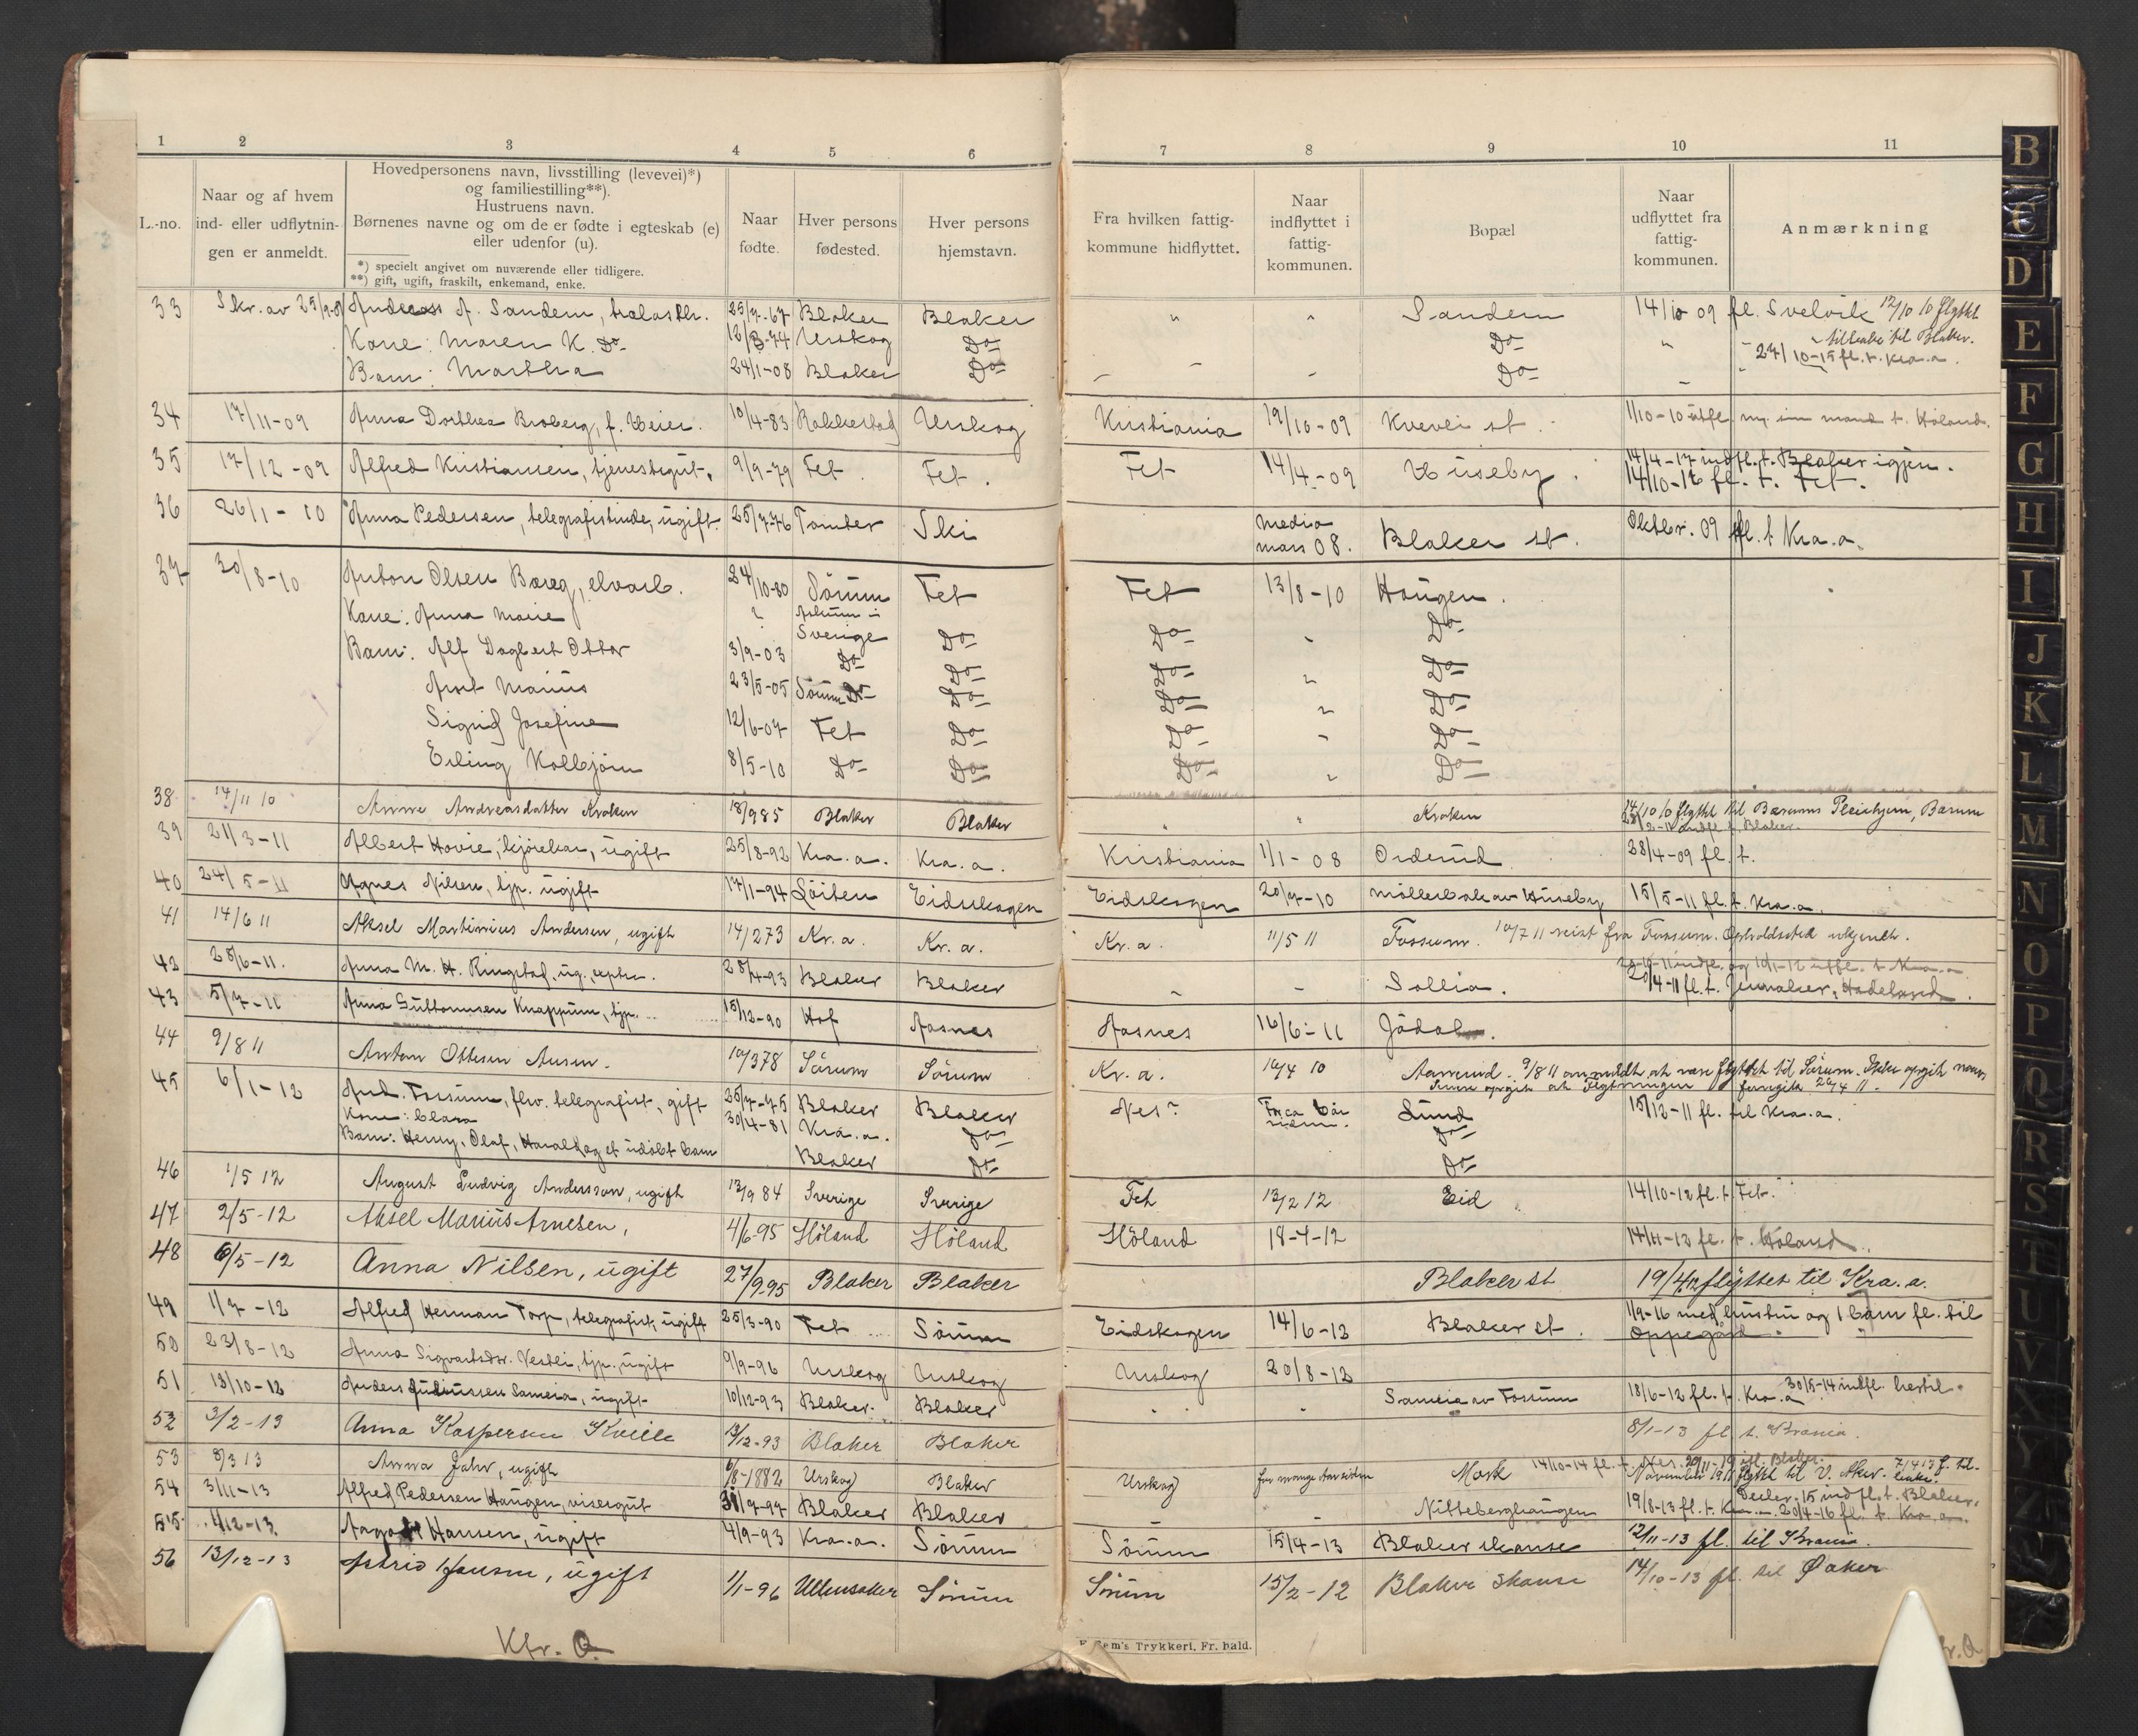 1 2 3 4 5 6 7 8 9 10 11
L.-no.
Naar og af hvem
ind- eller udflytnin-
gen er anmeldt.
Hovedpersonens navn, livsstilling (levevei)*)
og familiestilling**).
Hustruens navn.
Børnenes navne og om de er fødte i egteskab (e)
eller udenfor (u).
*) specielt angivet om nuværende eller tidligere.
**) gift, ugift, fraskilt, enkemand, enke.
Naar
fødte.
Hver persons
fødested.
Hver persons
hjemstavn.
Fra hvilken fattig-
kommune hidflyttet.
Naar
indflyttet i
fattig-
kommunen.
Bopæl
Naar
udflyttet fra
fattig-
kommunen.
Anmærkning
33 Skr. av 25/9-09 Andreas A. Sandem, 25/7-67 Blaker Blaker " " Sandem 14/10 09 fl. Svelvik 12/10 10 flyttet
Kone: Maren K. Do 12/3-74 Urskog Do Do " tilbake til Blaker.
Barn: Martha 24/1-08 Blaker Do Do 24/10-15 fl. t. Kra.a.
34 17/11-09 Anna Dorthea Broberg, f. Meier. 10/4-83 Rakkestad Urskog Kristiania 19/10-09 Kvevli st. 1/10-10 utfl. m. sin mand t. Höland.
35 17/12-09 Alfred Kristiansen, tjenestegut. 9/9-79 Fet. Fet. Fet 14/4-09 Huseby. 14/4-17 indfl. t. Blaker igjen.
14/10-16 fl. t. Fet.
36 26/1-10 Anna Pedersen, telegrafistinde, ugift. 25/7-76 Tomter Ski medio
mars 08. Blaker st. Oktbr. 09 fl. t Kra.a.
37 30/8-10 Anton Olsen Bæreg, elvarb. 24/10-80 Sörum Fet Fet 13/8-10 Haugen.
Kone: Anna Marie " Sverige Do Do " Do
Barn: Alf Dagbert Ottar 3/9-03 Do Do Do " Do
Arnt Marius 23/5-05 Sörum Do Do " Do
Sigrid Josefine 12/6-07 Fet Do Do " Do
Erling Kolbjörn 8/5-10 Do Do Do " Do
38 14/11 10 Anne Andreasdatter Kroken 18/9 85 Blaker Blaker " " Kroken 14/10 10 flyttet til Bærums Pleiehjem, Bærum
indfl. t. Blaker.
39 21/3-11 Albert Hovie, kjörekar, ugift 25/8-92 Kra.a. Kra.a. Kristiania 1/1-08 Orderud 28/4-09 fl. t.
40 24/5-11 Agnes Nilsen, tjp. ugift 17/1-94 Löiten Eidskogen Eidskogen 20/7-10 möllerbak av Huseby 15/5-11 fl. t. Kra.a.
41 14/6 11 Aksel Martinius Andersen, ugift 14/2 73 Kr.a. Kr.a. Kr.a. 11/5 11 Fossum. 10/7 11 reist fra Fossum. Opholdssted ukjendt.
42 28/6-11. Anna M. H. Ringstad, ug. 28/4-93 Blaker Blaker " " Sollia. indfl. og 10/1-12 utfl. t Kra.a
20/4-11 fl. t. Jevnaker, Hadeland.
43 5/7-11 Anna Guttormsen Knappum, tjp. 15/12-90 Hof Aasnes Aasnes 16/6-11 Jödal.
44 9/8 11 Anton Ottesen Ausen. 10/3 78 Sörum Sörum Kr.a. 10/4 10 Aamrud. 9/8 11 anmeldt at være flyttet til Sörum. Ikke opgit naar
Senere opgit at flytningen foregik 26/4 11.
45 6/1-12 And. Fossum, fhv. telegrafist, gift 25/7-75 Blaker Blaker Nes? Lund 15/12-11 fl. til Kra.a.
Kone: Clara 30/4-81 Kra.a. Do Do
Barn: Henry, Olaf, Harald og et udöbt barn Blaker Do Do
46 1/5 12 August Ludvig Andersson, ugift 13/9 84 Sverige Sverige Fet 13/2 12 Eid 14/10-12 fl. t. Fet.
47 2/5-12 Aksel Marius Arnesen, 4/6-95 Höland Höland Höland 18-4-12 14/11-13 fl. t. Höland.
48 6/5-12 Anna Nilsen, ugift 27/9-95 Blaker Blaker Blaker st 19/4 12 flyttet til Kra.a.
49 1/7-12 Alfred Herman Torp, telegrafist, ugift 25/3-90 Fet Sörum Eidskogen 14/6-12 Blaker st. 1/9-16 med hustru og 1 barn fl. til
Oppegård.
50 23/8-12 Anna Sigvartsdtr. Vestli, tjp. ugift 9/9-96 Urskog Urskog Urskog 20/8-12
51 13/10-12 Anders Juliussen Sameia, ugift 10/12-93 Blaker. Blaker " " Sameia av Fossum 18/6-12 fl. t. Kra.a 30/5-14 indfl. hertil.
52 3/2-13 Anna Kaspersen Kvile 13/12-93 Blaker Blaker 8/1-13 fl t. Krania.
53 8/3 13 Anna Jahr, ugift 6/8-1882 Urskog Blaker Urskog for mange Aar siden Mork 14/10-14 fl. t. Nes. indfl. Blaker.
November 1911 flyttet til V. Aker.
54 3/11-13 Alfred Pedersen Haugen, visergut 31/7-97 Blaker Blaker " " Nitteberghaugen Decbr. 15 indfl. t. Blaker.
19/8-13 fl. t. Kra.a. 20/4-16 fl. t. Kra.a.
55 1/12-13 Aagot Hansen, ugift 4/9-93 Kra.a. Sörum Sörum 15/4-13 Blaker skanse 12/11-13 fl. til Krania.
56 13/12-13 Astrid Hansen, ugift 1/1-96 Ullensaker Sörum Sörum 15/2-12 Blaker Skanse 14/10-13 fl. til Øaker
Kfr. Q.
Trykkeri, Fr. hald.
B
C
D
E
F
G
H
I
J
K
L
M
N
O
P
Q
R
S
T
U
V
X
Y
Z